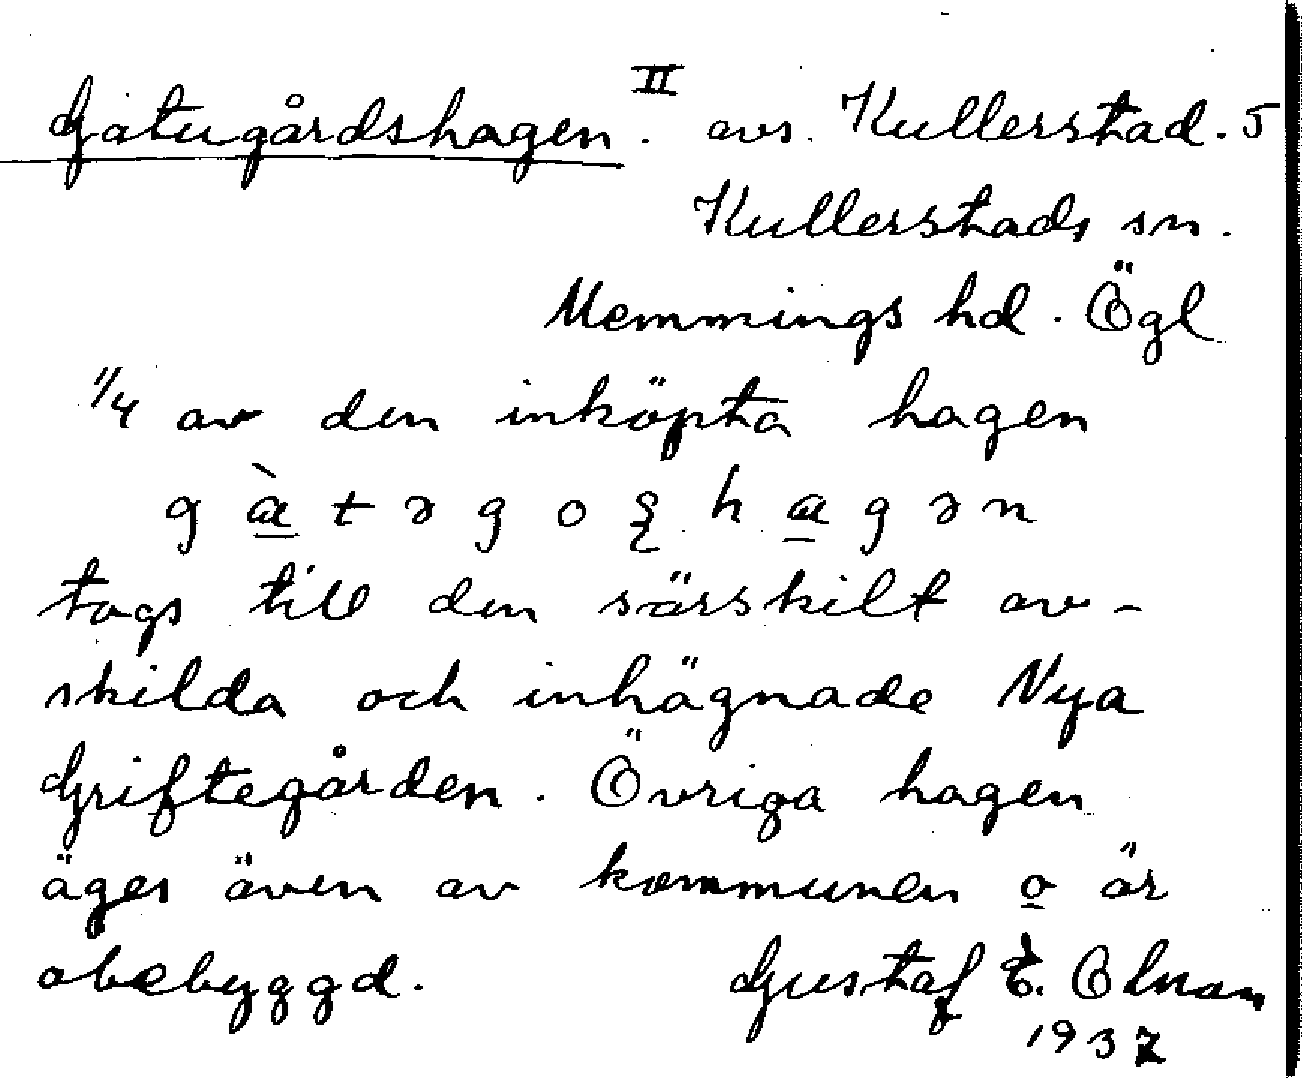 Gatugårdshagen. II avs. Kullerstad. 5
Kullerstads sn.
Memmings hd. Ögl
1/4 av den inköpta hagen
g à t ə g o ş h a g ə n
togs till den särskilt av-
skilda och inhägnade Nya
Griftegården. Övriga hagen
äges även av kommunen o är
obebyggd. Gustaf E.
1937